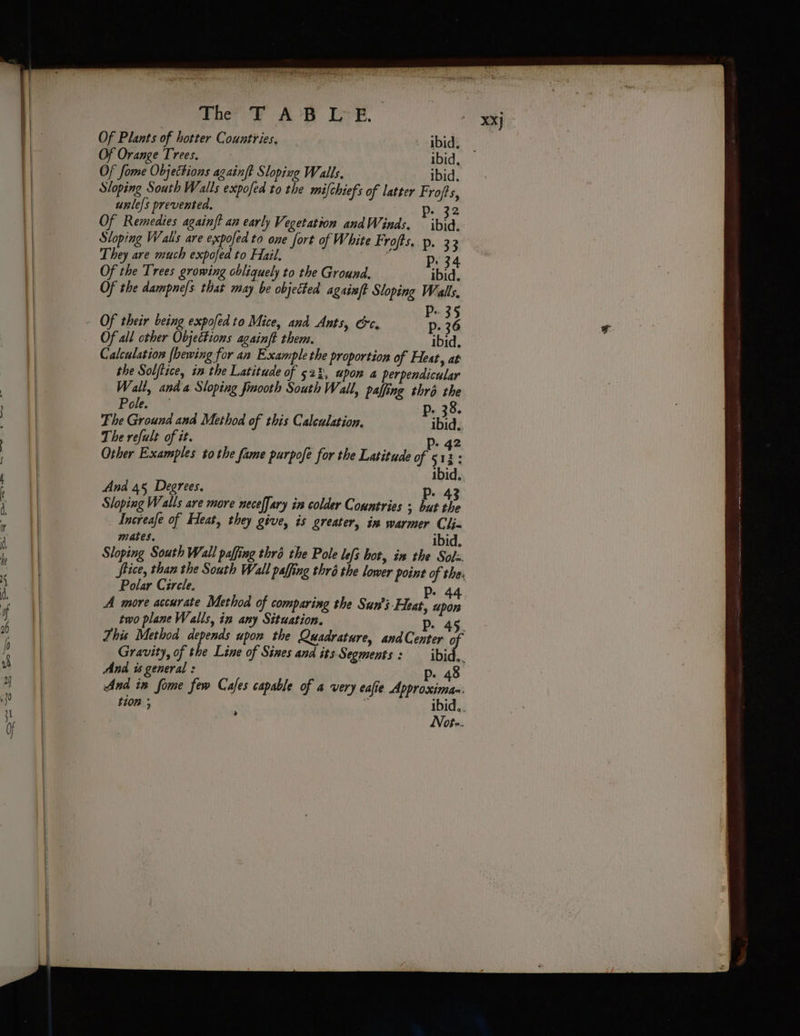 The TABLE. xxj
Of Plants of hotter Countries. ibid.
Of Orange Trees. ibid.
Of ſome Objections againſt Sloping Walls. ibid.
Sloping South Walls expoſed to the miſchiefs of latter Froſts,
unleſs prevented. p. 32
Of Remedies againſt an early Vegetation and Winds. ibid.
Sloping Walls are expoſed to one ſort of White Froſts. p. 33
They are much expoſed to Hail. p. 34
Of the Trees growing obliquely to the Ground. ibid.
Of the dampneſs that may be objected againſt Sloping Walls.
p. 35
Of their being expoſed to Mice, and Ants, &c. p. 36
Of all other Objections againſt them. ibid.
Calculation ſhewing for an Example the proportion of Heat, at
the Solſtice, in the Latitude of 52½, upon a perpendicular
Wall, and a Sloping ſmooth South Wall, paſſing thrô the
Pole. p. 38.
The Ground and Method of this Calculation. ibid.
The reſult of it. p. 42
Other Examples to the ſame purpoſe for the Latitude of 51½ :
ibid.
And 45 Degrees. p. 43
Sloping Walls are more neceſſary in colder Countries ; but the
Increaſe of Heat, they give, is greater, in warmer Cli-
mates. ibid.
Sloping South Wall paſſing thrô the Pole leſs hot, in the Sol-
ſtice, than the South Wall paſſing thrô the lower point of the
Polar Circle. p. 44
A more accurate Method of comparing the Sun's Heat, upon
two plane Walls, in any Situation. p. 45
This Method depends upon the Quadrature, and Center of
Gravity, of the Line of Sines and its Segments : ibid.
And is general : p. 48
And in ſome few Caſes capable of a very eaſie Approxima-
tion ; ibid.
Not-